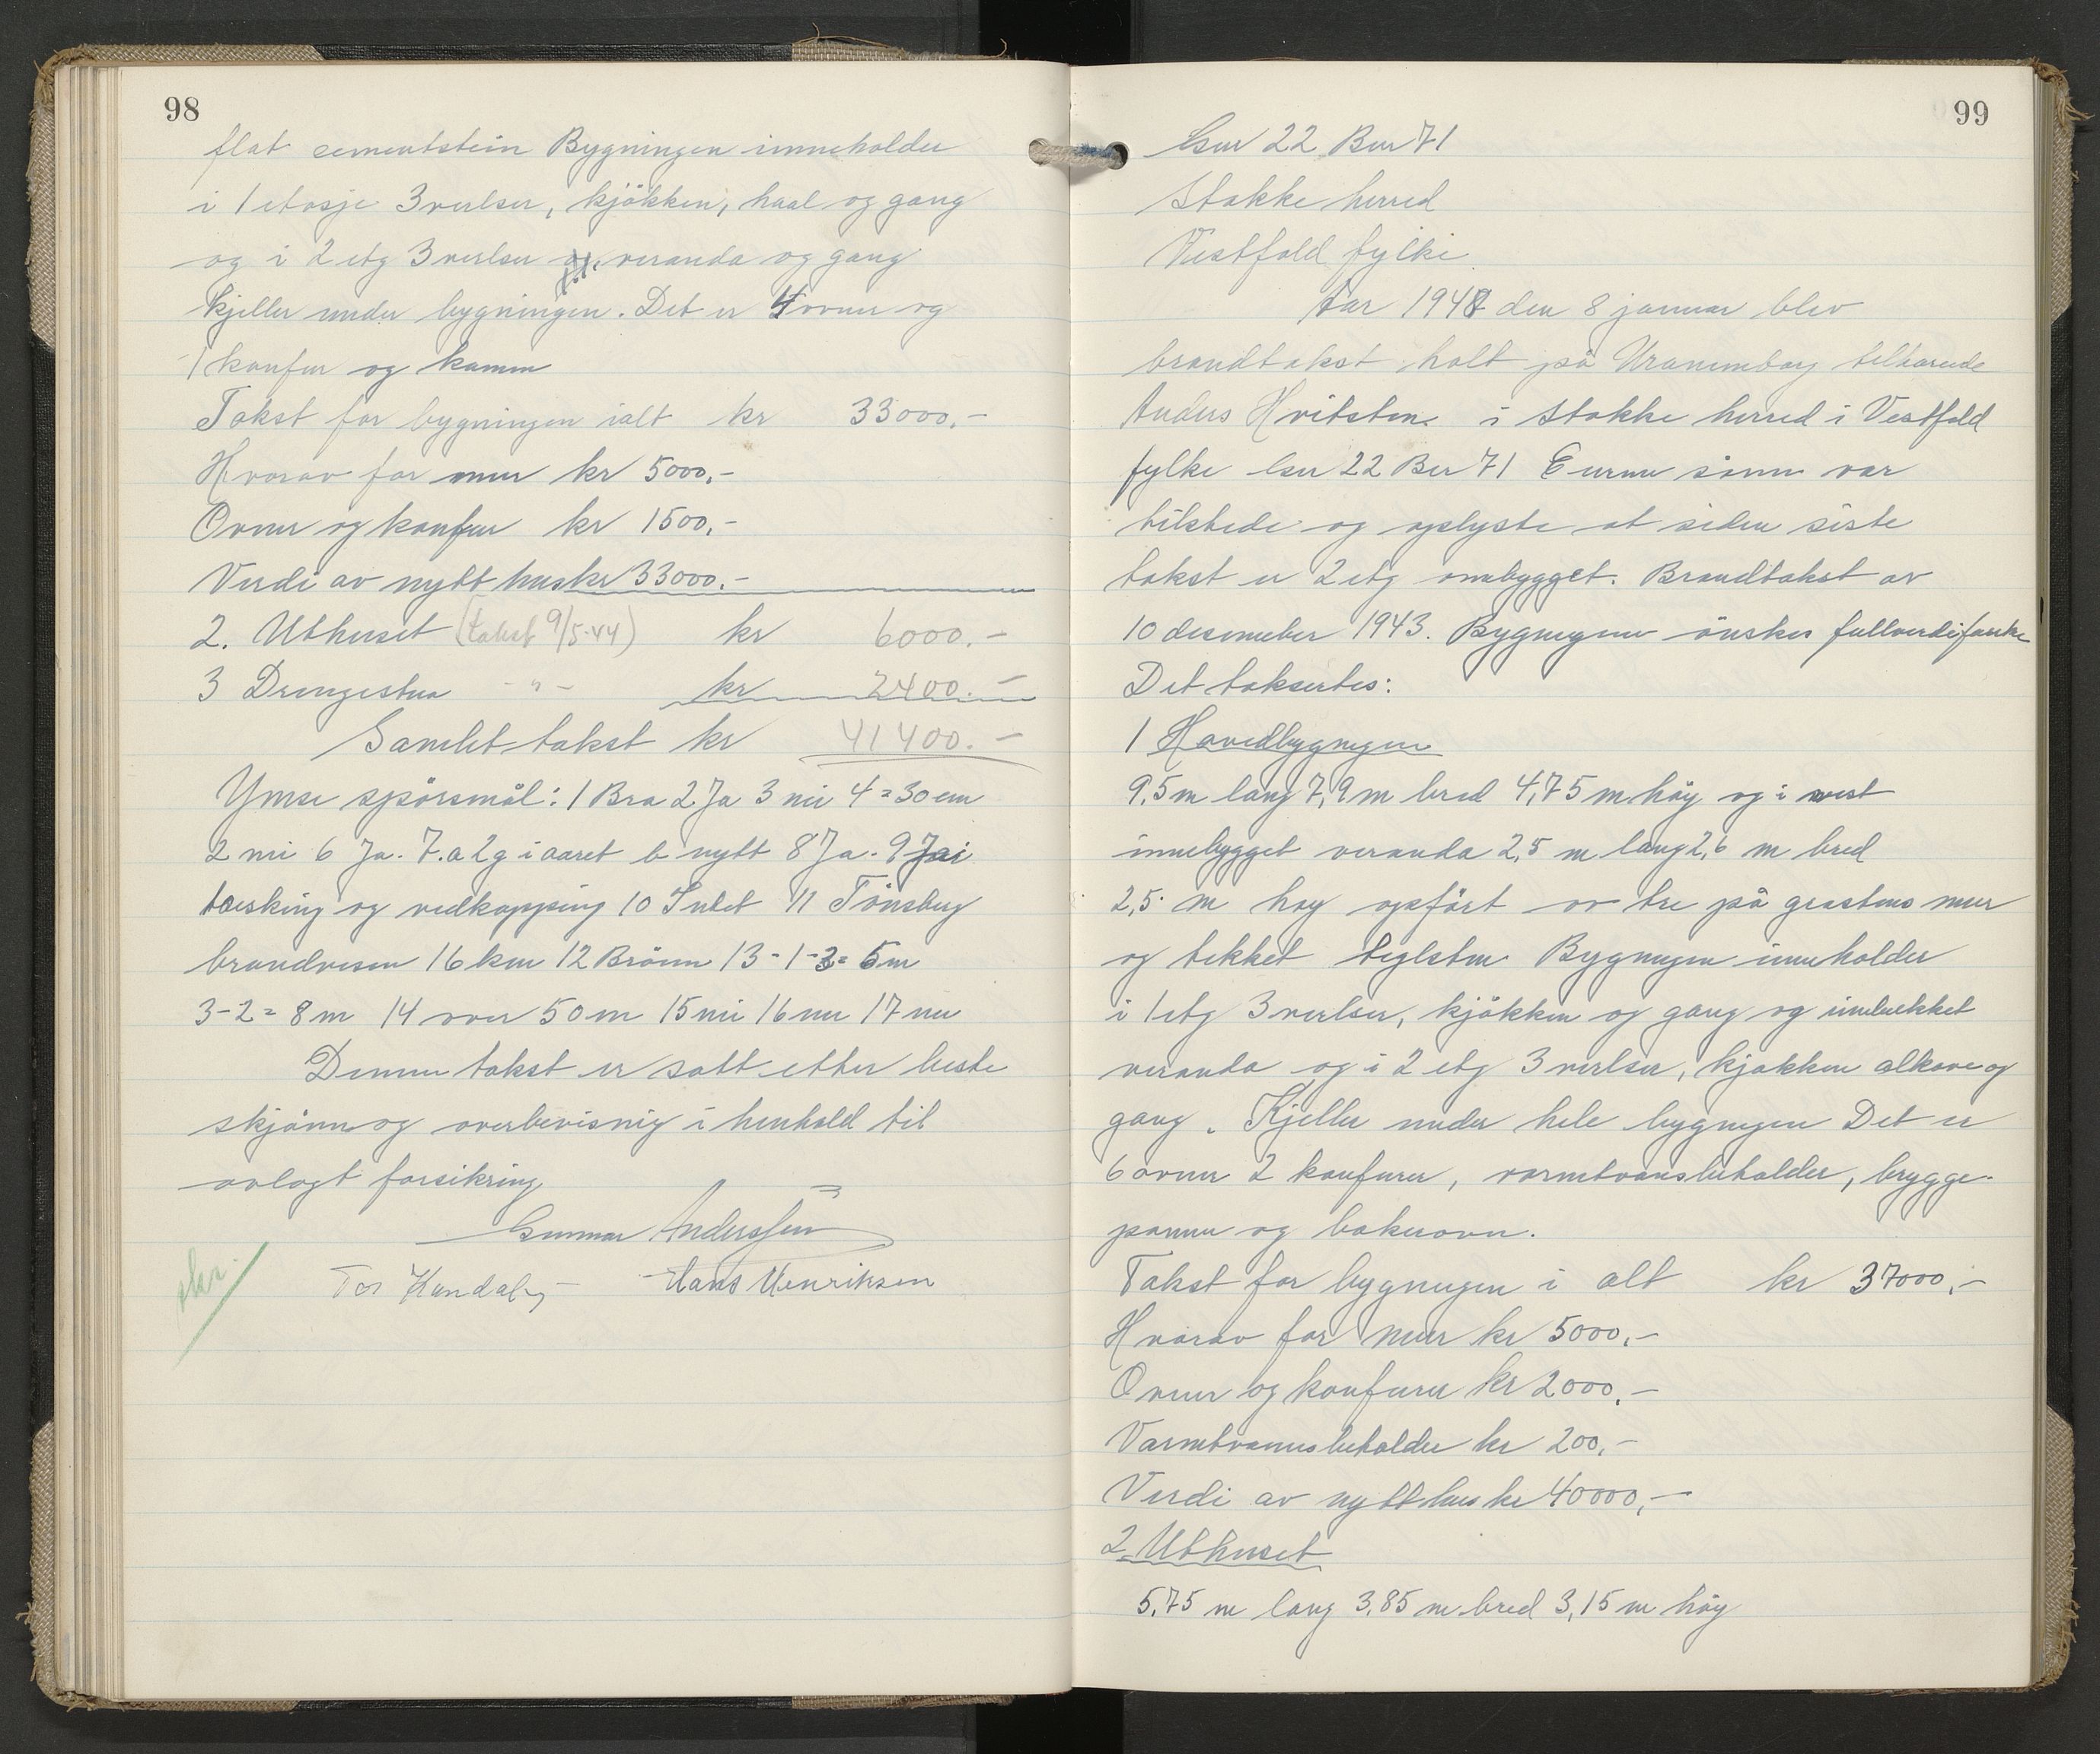 98
flat cementstein Bygningen inneholder
i 1 etasje 3 verlser, kjökken, haal og gang
og i 2 etg 3 verlser veranda og gang
kjeller under bygningen. Det er 4 ovner og
1 komfur og kamin
Takst for bygningen ialt kr 33000.-
Hvorav for mur kr 5000.-
Ovner og komfur kr 1500.-
Verdi av nytt hus kr 33000.-
2. Uthuset (takst 9/5-44) kr 6000.-
3 Drengestua - " - kr 2400.-
Samlet takst kr 41400.-
Ymse spörsmål: 1 Bra 2 Ja 3 nei 4 = 30 cm
2 nei 6 Ja. 7. a 2 g i aaret b nytt 8 Ja. 9 Jai
tresking og vedkapping 10 Intet 11 Tönsberg
brandvesen 16 km 12 Brönn 13 - 1-3 = 6 m
3-2 = 8 m 14 over 50 m 15 nei 16 nei 17 nei
Denne takst er satt etter beste
skjönn og overbevisnig i henhold til
avlagt forsikring
Gunnar Anderssen
Tor Hundal Hans Henriksen
99
Gnr 22 Bnr 71
Stokke herred
Vestfold fylke
Aar 1948 den 8 januar blev
brandtakst holt på Uranienborg tilhörende
Anders Hvitsten i Stokke herred i Vestfold
fylke Gnr 22 Bnr 71 Eieren som var
tilstede og oplyste at siden siste
takst er 2 etg ombygget. Brandtakst av
10 desember 1943. Bygnigene önskes fullverdiforsikr
Det taksertes:
1 Hovedbygnigen
9,5 m lang 7,9 m bred 4,75 m höy og i vest
innebygget veranda 2,5 m lang 2,6 m bred
2,5 m höy opfört av tre på grastens mur
og tekket teglsten Bygnigen inneholder
i 1 etg 3 verlser, kjökken og gang og innelukket
veranda og i 2 etg 3 verlser, kjökken alkove og
gang. Kjeller under hele bygnigen Det er
6 ovner 2 komfurer, varmtvansbeholder, brygge-
panne og bakerovn.
Takst for bygnigen i alt kr 37000,-
Hvorav for mur kr 5000,-
Ovner og komfurer kr 2000,-
Varmtvannsbeholder kr 200,-
Verdi av nytt hus kr 40000,-
2 Uthuset
5,75 m lang 3,85 m bred 3,15 m höy